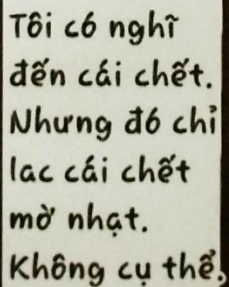 Tôi có nghĩ
đến cái chết.
Nhưng đó chỉ
lac cái chết
mờ nhạt.
Không cụ thể.